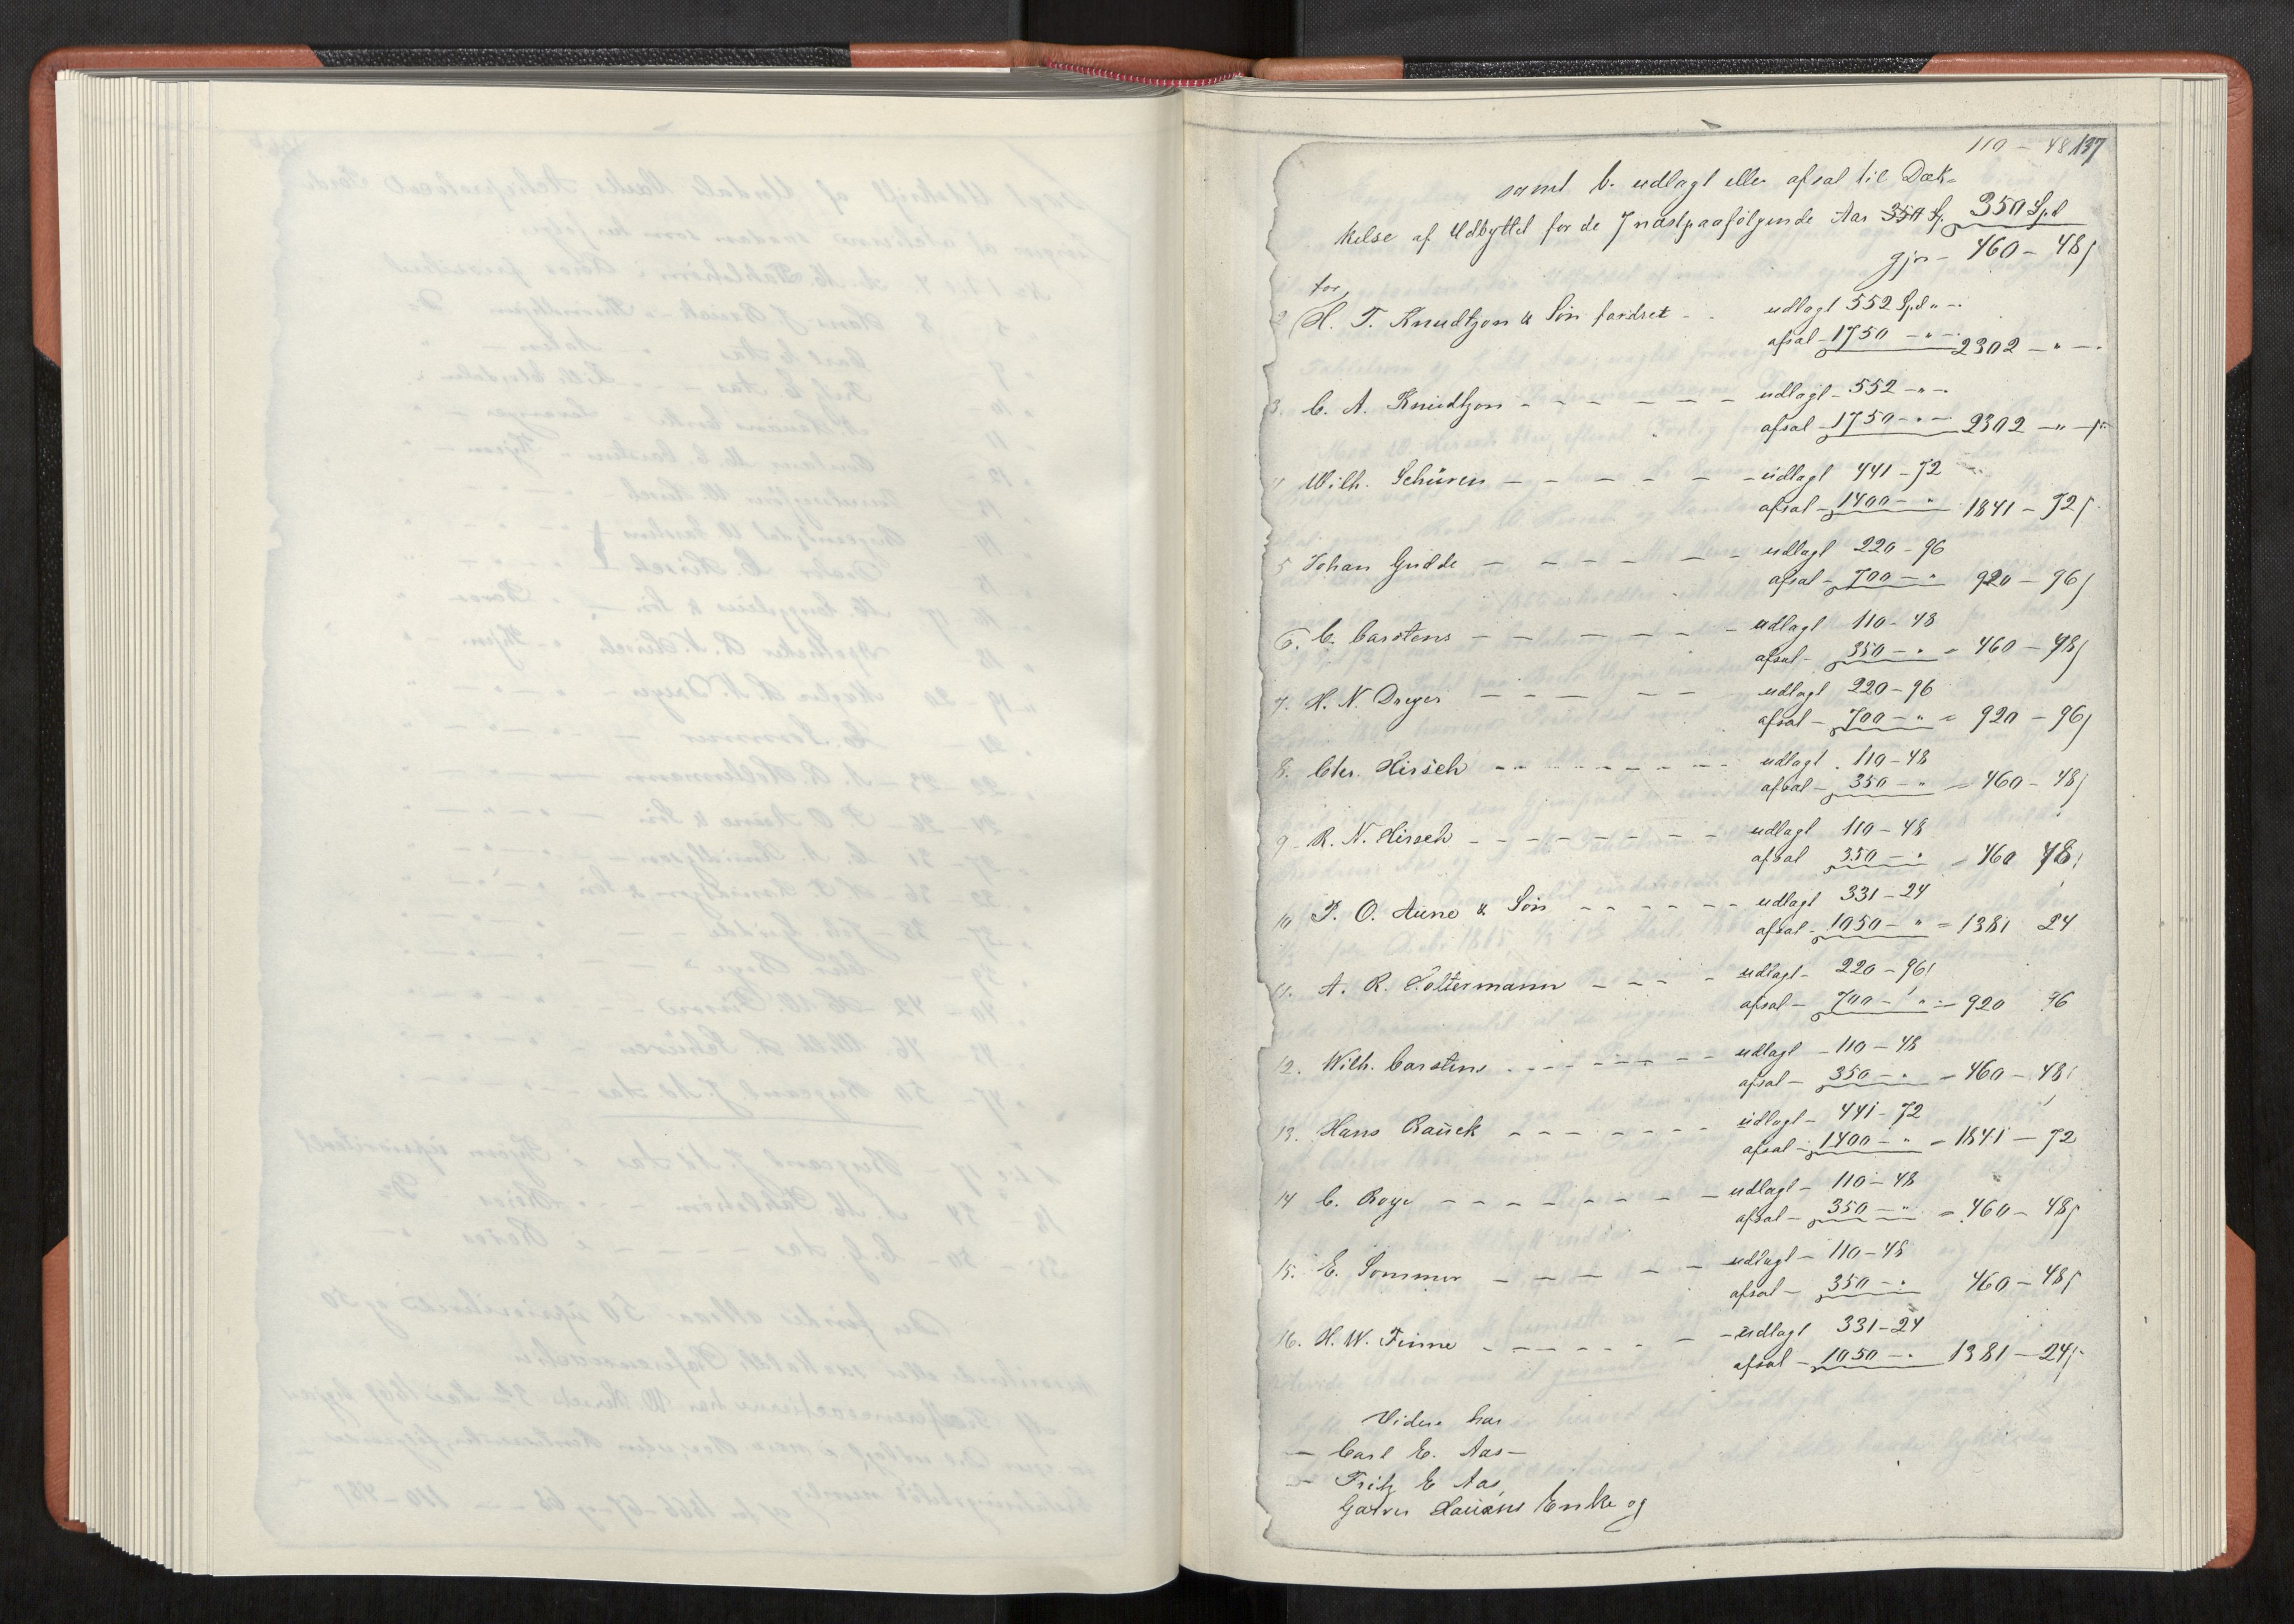 110 – 48 137
samt b. udlagt eller afsat til Dæk-
kelse af Udbyttet for de 7 næstpaafølgende Aar 350 Sp. 350 Spd
gjør – 460 – 48 ſ
for
2 H. T. Knudtzon & Søn fordret - - udlagt 552 Spd " -
afsat – 1750 – " – 2302 – " –
3. C. A. Knudtzon - - - - - - - udlagt – 552 – " –
afsat – 1750 – " – 2302 – " –
4 Wilh. Schüren - - - - - - udlagt 441 – 72
afsat – 1400 – " 1841 – 72 ſ
5 Johan Gudde - - - - - - udlagt 220 – 96
afsat – 700 – " 920 – 96 ſ
6. C. Carstens - - - - - - udlagt 110 – 48
afsat – 350 – " = 460 – 48 ſ
7. H. N. Dreyer - - - - - udlagt 220 – 96
afsat – 700 – " = 920 – 96 ſ
8. Chr. Hirsch - - - - - - - udlagt 110 – 48
afsat – 350 – " = 460 – 48 ſ
9 R. N. Hirsch - - - - - - - udlagt 110 – 48
afsat 350 – " – 460 48 ſ
10 P. O. Aune & Søn - - - - - - udlagt 331 – 24
afsat – 1050 – " = 1381 24
11. A. R. Coltermann - - - - udlagt – 220 – 96 ſ
afsat – 700 – " – 920 96
12. Wilh. Carstens - - - - - - - udlagt – 110 – 48
afsat – 350 – " – 460 – 48 ſ
13. Hans Bauck - - - - - - - udlagt – 441 – 72
afsat – 1400 – " – 1841 – 72
14 C. Boye - - - - - - - - udlagt – 110 – 48
afsat – 350 – " = 460 – 48 ſ
15. E. Sommer - - - - - - udlagt – 110 – 48
afsat – 350 – " 460 – 48 ſ
16. H. W. Finne - - - - - - - udlagt 331 – 24
afsat – 1050 – " 1381 – 24 ſ
Videre har
– Carl E. Aas –
– Fritz E Aas,
Garver Hauans Enke og